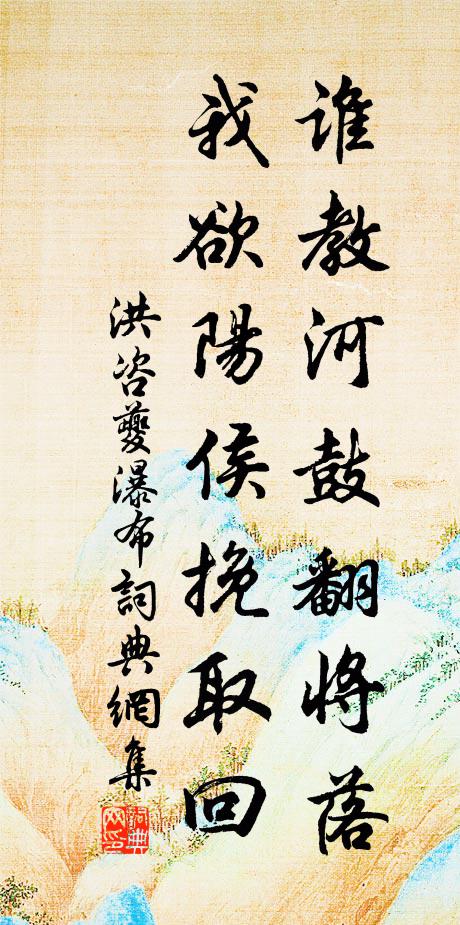 誰教河鼓翻將落
我欲陽侯挽取回
洪咨夔瀑布詞典網集
詞典網印